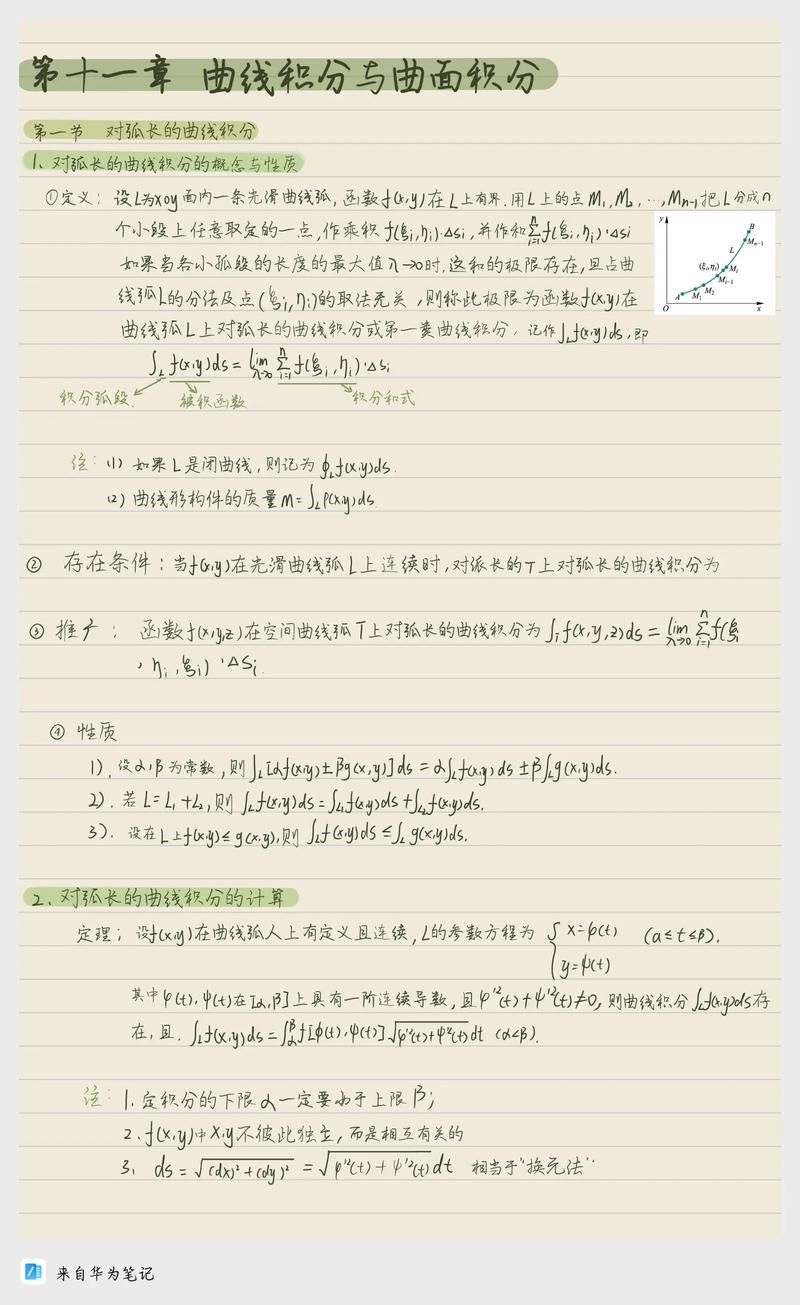 第十一章 曲线积分与曲面积分
第一节 对弧长的曲线积分
1、对弧长的曲线积分的概念与性质
①定义：设L为xoy面内一条光滑曲线弧，函数f(x,y)在L上有界.用L上的点M₁,M₂,…,Mn-1把L分成n
个小段上任意取定的一点,作乘积 f(ξi,ηi)·Δsi,并作和∑ⁿᵢ₌₁f(ξi,ηi)·Δsi
如果当各小弧段的长度的最大值λ→0时,这和的极限存在,且占曲
线弧L的分法及点(ξi,ηi)的取法无关,则称此极限为函数f(x,y)在
曲线弧L上对弧长的曲线积分或第一类曲线积分,记作∫L f(x,y)ds,即
∫L f(x,y)ds=lim λ→0 ∑ⁿᵢ₌₁ f(ξi,ηi)·Δsi
积分弧段. 被积函数 积分和式
y
B
Mn-1
L
(ξi,ηi)
Mi
Mi-1
M2
M1
A
O
x
注：(1) 如果L是闭曲线,则记为∮L f(x,y)ds.
(2) 曲线形构件的质量M=∫L ρ(x,y)ds.
② 存在条件：当f(x,y)在光滑曲线弧L上连续时,对派长的T上对弧长的曲线积分为
③ 推广： 函数f(x,y,z)在空间曲线弧T上对弧长的曲线积分为∫T f(x,y,z)ds=lim λ→0 ∑ⁿᵢ₌₁f(ξi
,ηi,ξi)·Δsi.
④ 性质
1).设α,β为常数,则∫L[αf(x,y)±βg(x,y)]ds=α∫L f(x,y)ds±β∫L g(x,y)ds.
2).若L=L₁+L₂,则∫L f(x,y)ds=∫L₁ f(x,y)ds+∫L₂ f(x,y)ds.
3).设在L上f(x,y)≤g(x,y),则∫L f(x,y)ds≤∫L g(x,y)ds.
2、对弧长的曲线积分的计算
定理；设f(x,y)在曲线弧人上有定义且连续,L的参数方程为 { x=φ(t) (α≤t≤β).
y=ψ(t)
其中φ(t),ψ(t)在[α,β]上具有一阶连续导数,且φ'²(t)+ψ'²(t)≠0,则曲线积分∫L f(x,y)ds存
在,且.∫L f(x,y)ds=∫αβ f[φ(t),ψ(t)]√φ'²(t)+ψ'²(t) dt (α<β).
注： 1.定积分的下限α一定要小于上限β;
2、f(x,y)中x,y不彼此独立,而是相互有关的
3、ds=√(dx)²+(dy)² =√φ'²(t)+ψ'²(t) dt 相当于"换元法"
来自华为笔记